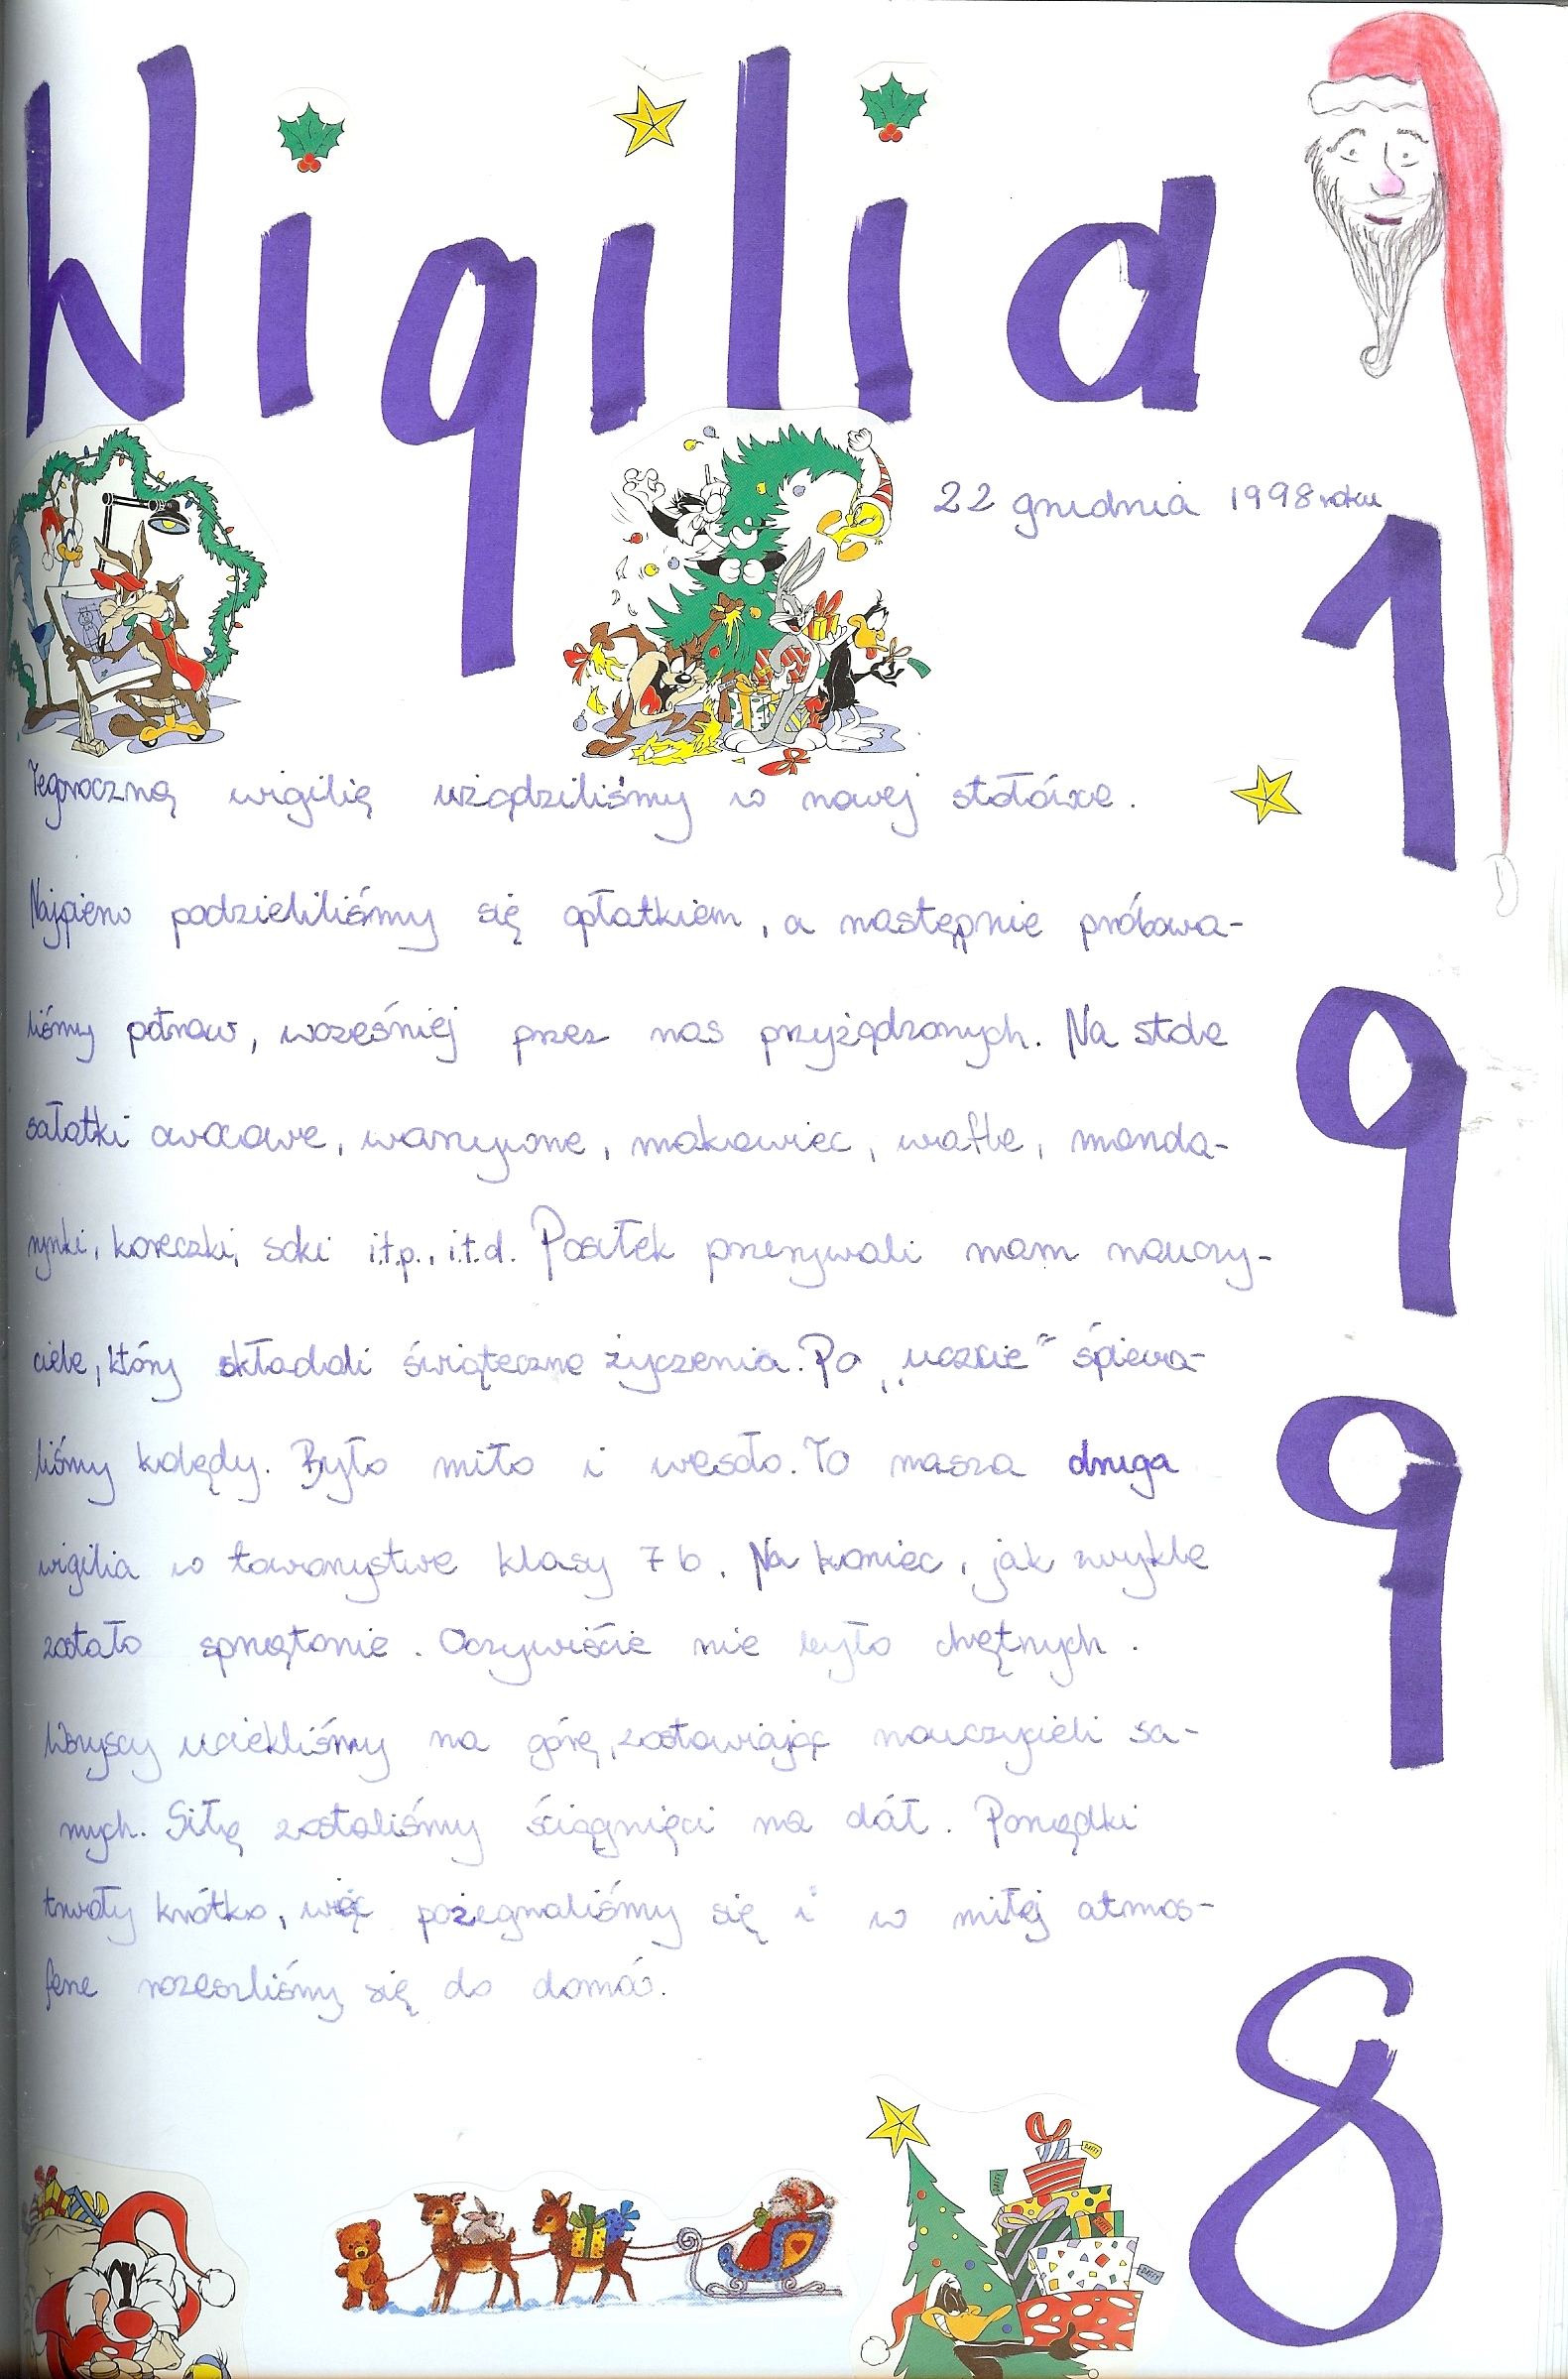 Wigilia
22 grudnia 1998 roku
1998
Tegoroczną wigilię użądziliśmy w nowej stołówce.
Najpierw podzieliliśmy się opłatkiem, a następnie próbowa-
liśmy potraw, wcześniej przez nas przyżądzonych. Na stole
sałatki owocowe, warzywne, makowiec, wafle, manda-
rynki, koreczki, soki i.t.p., i.t.d. Posiłek przerywali nam nauczy-
ciele, którzy składali świąteczne życzenia. Po „uczcie" śpiewa-
liśmy kolędy. Było miło i wesoło. To nasza druga
wigilia w towarzystwie klasy 7b. Na koniec, jak zwykle
zostało sprzątanie. Oczywiście nie było chętnych.
Wszyscy uciekliśmy na górę, zostawiając nauczycieli sa-
mych. Siłą zostaliśmy ściągnięci na dół. Porządki
trwały krótko, więc pożegnaliśmy się i w miłej atmos-
ferze rozeszliśmy się do domów.